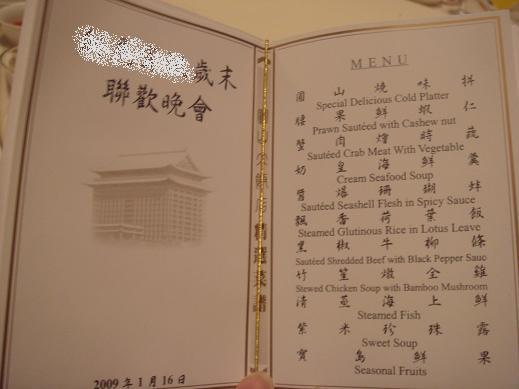 歲末
聯歡晚會
2009 年 1 月 16 日
MENU
圓 山 燒 味 拼
Special Delicious Cold Platter
腰 果 鮮 蝦 仁
Prawn Sautéed with Cashew nut
蟹 肉 燴 時 蔬
Sautéed Crab Meat With Vegetable
奶 皇 海 鮮 羹
Cream Seafood Soup
醬 爆 珊 瑚 蚌
Sautéed Seashell Flesh in Spicy Sauce
飄 香 荷 葉 飯
Steamed Glutinous Rice in Lotus Leave
黑 椒 牛 柳 條
Sautéed Shredded Beef with Black Pepper Sauc
竹 笙 燉 全 雞
Stewed Chicken Soup with Bamboo Mushroom
清 蒸 海 上 鮮
Steamed Fish
紫 米 珍 珠 露
Sweet Soup
寶 島 鮮 果
Seasonal Fruits